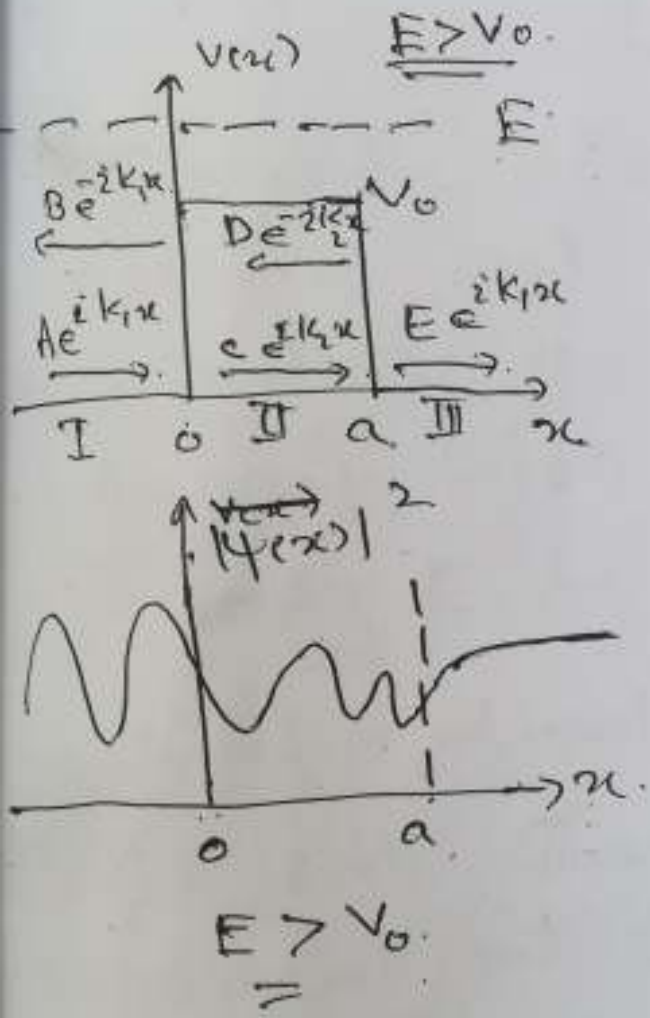 V(x) E > V₀.
E
Be^{-ik₁x} V₀
De^{-ik₂x}
Ae^{ik₁x} C e^{ik₂x} E e^{ik₁x}
I 0 II a III x
|ψ(x)|²
x.
0 a.
E > V₀.